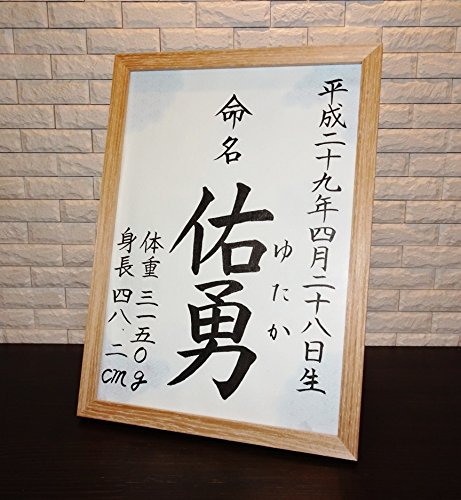 平成二十九年四月二十八日生
命名
佑勇
ゆたか
体重三一五〇g
身長四八.二cm